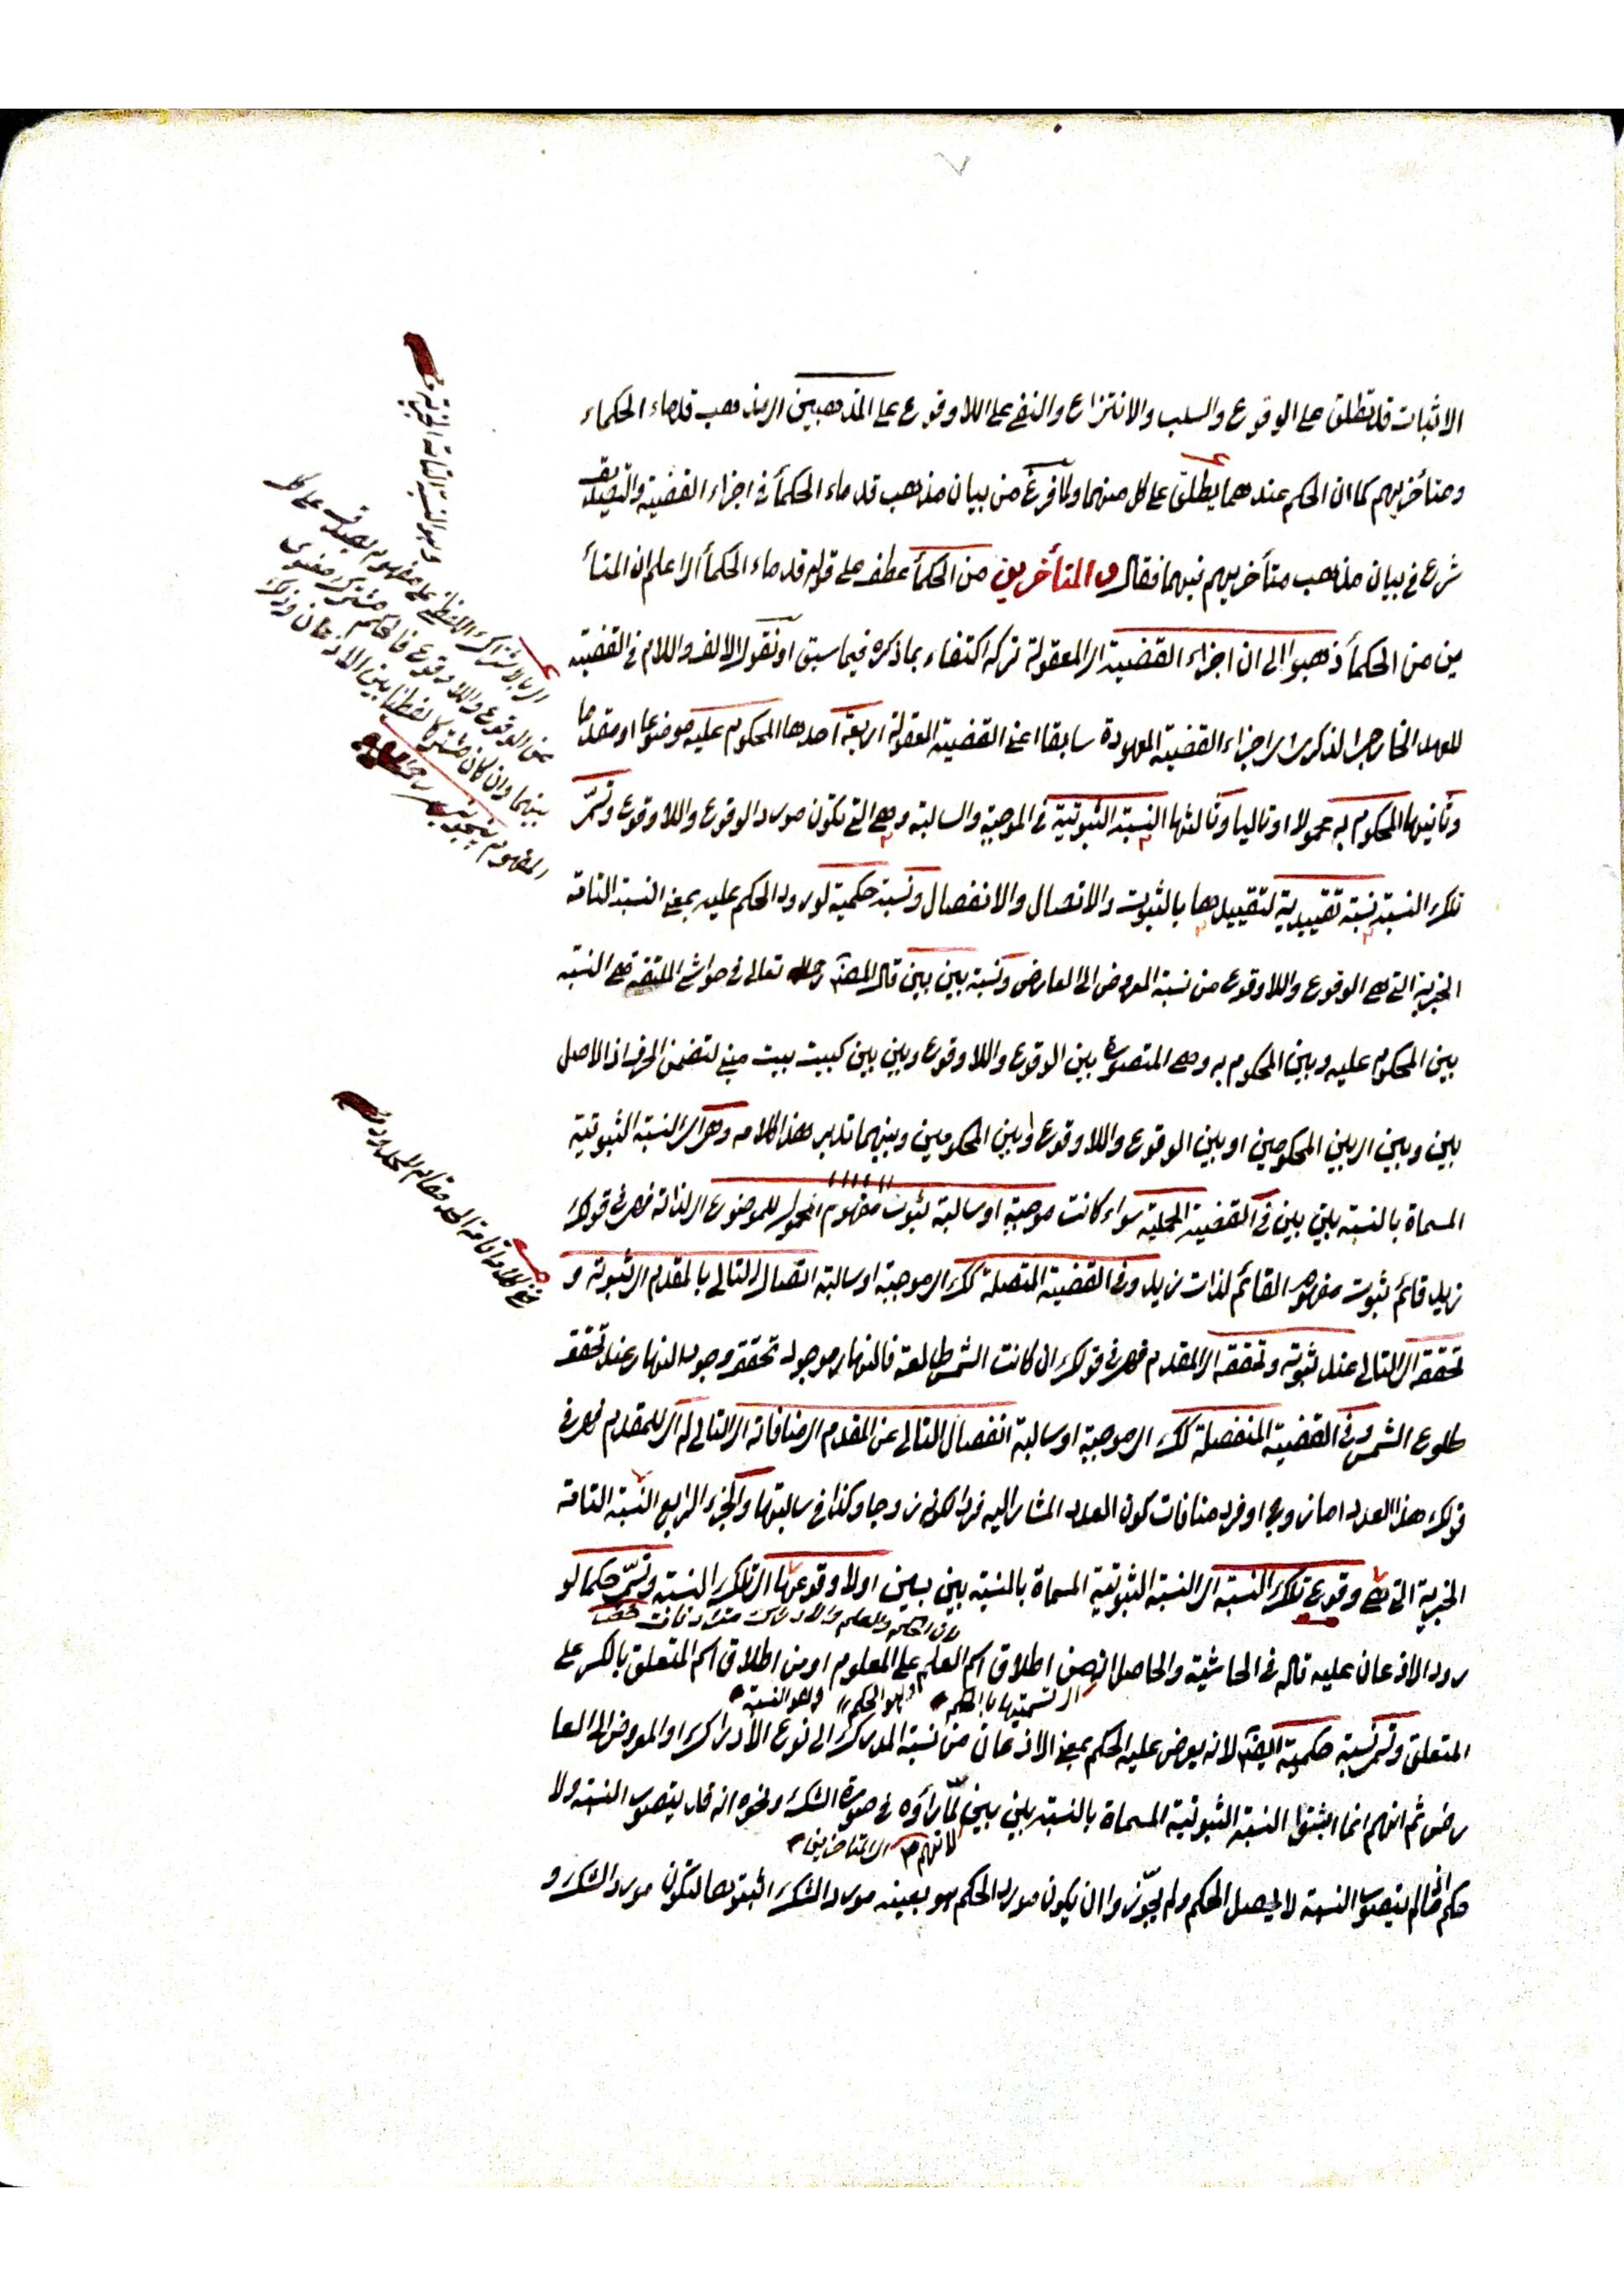 الاثبات قد تطلق على الوقوع والسلب والانتزاع والنفي على اللاوقوع على المذهبين اى مذهب قدماء الحكماء
ومتأخريهم كما ان الحكم عندهما يطلق على كل منهما ولما فرغ من بيان مذهب قدماء الحكمأ فى اجزاء القضية والتصديق
شرع فى بيان مذهب متأخريهم فيهما فقال والمتأخرين من الحكمأ عطف على قوله قدماء الحكمأ اى اعلم ان المتأ
خرين من الحكمأ ذهبوا الى ان اجزاء القضية اى المعقولة تركه اكتفاء بما ذكره فيما سبق او نقول الالف واللام فى القضية
للعهد الخارجى الذكرى اى اجزاء القضية المعهودة سابقا اعنى القضية المعقولة اربعة احدها المحكوم عليه موضوعا او مقدما
وثانيها المحكوم به محمولا او تاليا وثالثها النسبة الثبوتية فى الموجبة والسالبة وهى التى تكون مورد الوقوع واللاوقوع وتسمّى
تلك النسبة نسبة تقييدية لتقييدها بالثبوت والاتصال والانفصال ونسبة حكمية لورود الحكم عليه بمعنى النسبة التامة
الخبرية التى هى الوقوع واللاوقوع من نسبة المعروض الى العارض ونسبة بين بين قال المصنف رحمه الله تعالى فى حواشى وهى النسبة
بين المحكوم عليه وبين المحكوم به وهى المتصورة بين الوقوع واللاوقوع وبين بين كبيت بيت مبنى لتضمن الحرف اذ الاصل
بين وبين اى بين المحكومين او بين الوقوع واللاوقوع او بين المحكومين وبينهما تدبر هذا كلامه وهى اى النسبة الثبوتية
المسماة بالنسبة بين بين فى القضية الحملية سواء كانت موجبة او سالبة ثبوت مفهوم المحمول للموضوع اى لذاته فهى فى قولك
زيد قائم ثبوت مفهوم القائم لذات زيد وفى القضية المتصلة كذلك اى موجبة او سالبة اتصال التالى بالمقدم اى ثبوته و
تحققه اى التالى عند ثبوته وتحققه اى المقدم فهى فى قولك ان كانت الشمس طالعة فالنهار موجود تحقق وجود النهار عند تحقق
طلوع الشمس وفى القضية المنفصلة كذلك اى موجبة او سالبة انفصال التالى عن المقدم اى منافاته اى التالى له اى للمقدم فهى فى
قولك هذا العدد اما زوج او فرد منافات كون العدد المشار اليه فردا لكونه زوجا وكذا فى سالبتها والجزء الرابع النسبة التامة
الخبرية التى هى وقوع تلك النسبة اى النسبة الثبوتية المسماة بالنسبة بين بين او لا وقوعها اى تلك النسبة وتسمّى حكما لو
لان الحكم والعلم والادراك مترادفات
رود الاذعان عليه قاله فى الحاشية والحاصل انه من اطلاق اسم العلم على المعلوم او من اطلاق اسم المتعلق بالكسر على
اى تسميتها بالحكم وهو الحكم وهو النسبة
المتعلق وتسمى نسبة حكمية ايضا لانه يعرض عليه الحكم بمعنى الاذعان من نسبة المدرك الى نوع الادراك او المعروض الى العا
رض ثم انهم انما اثبتوا النسبة الثبوتية المسماة بالنسبة بين بين لمّا رأوه فى صورة الشك ونحوه انه قد يتصور النسبة ولا
لانهم
حكم فما لم يتصور النسبة لا يحصل الحكم ولم يجوّزوا ان يكون مورد الحكم هو بعينه مورد الشك اثبتوها لتكون مورد الشك و
اى بالاشتراك اللفظى على مفهوم يصدق على كل
من الوقوع واللاوقوع فالحكم مشترك معنوى
بينهما وان كان مشتركا لفظيا بين الاذعان وذلك
المفهوم
وهو النسبة التامة الخبرية